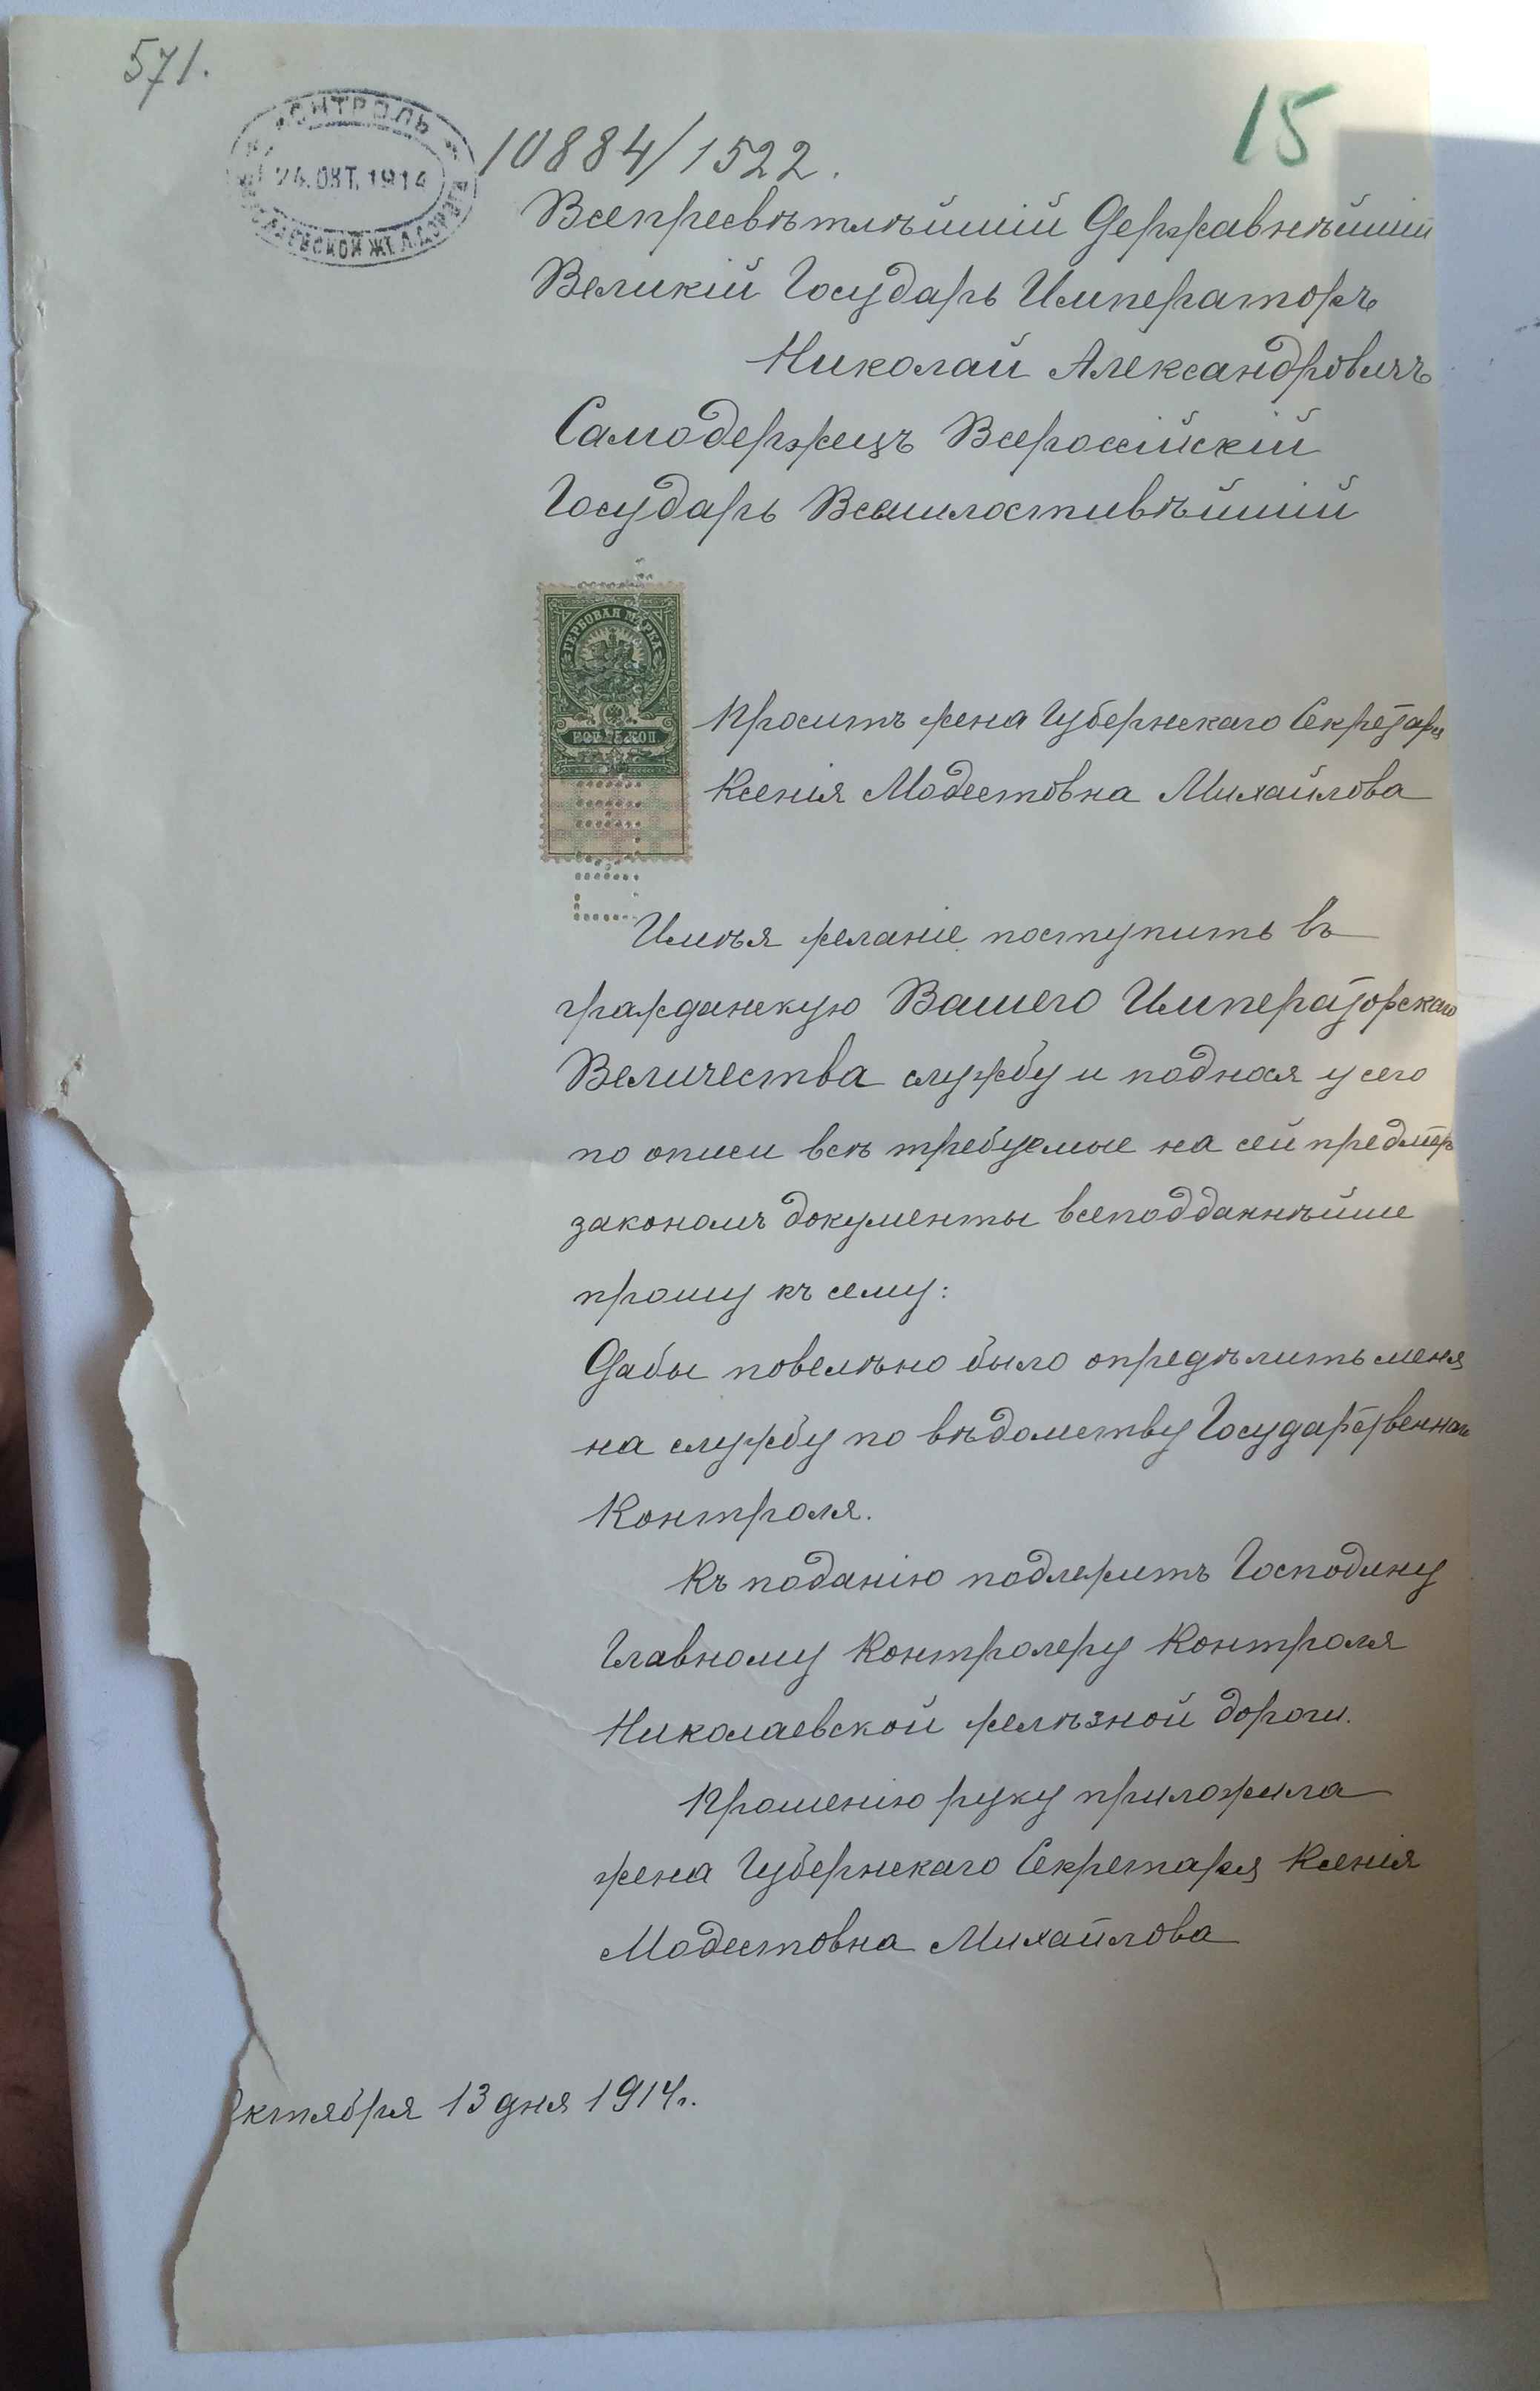 571.
КОНТРОЛЬ
24. ОКТ. 1914
НИКОЛАЕВСКОЙ ЖЕЛ. ДОРОГИ
10884/1522.
15
Всепресвѣтлѣйшій Державнѣйшій
Великій Государь Императоръ
Николай Александровичъ
Самодержецъ Всероссійскій
Государь Всемилостивѣйшій
ГЕРБОВАЯ МАРКА
75 КОП
Проситъ жена Губернскаго Секретаря
Ксенія Модестовна Михайлова
Имѣя желаніе поступить въ
гражданскую Вашего Императорскаго
Величества службу и поднося у сего
по описи всѣ требуемые на сей предметъ
закономъ документы всеподданнѣйше
прошу къ сему:
Дабы повелѣно было опредѣлить меня
на службу по вѣдомству Государственнаго
Контроля.
Къ поданію подлежитъ Господину
Главному Контролеру Контроля
Николаевской желѣзной дороги.
Прошенію руку приложила
жена Губернскаго Секретаря Ксенія
Модестовна Михайлова
Октября 13 дня 1914г.